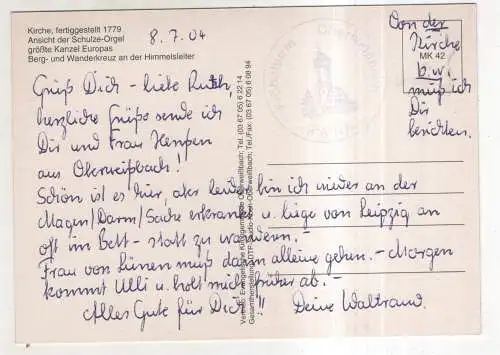 Kirche, fertiggestellt 1779
Ansicht der Schulze-Orgel
größte Kanzel Europas
Berg- und Wanderkreuz an der Himmelsleiter
8.7.04
Grüß Dich - liebe Ruth,
herzliche Grüße sende ich
Dir und Frau
aus Oberweißbach!
Schön ist es hier, aber leider bin ich wieder an der
Magen/Darm/Sache erkrankt u. liege von Leipzig an
oft im Bett - statt zu wandern. -
Frau von Lünen muß dann alleine gehen. - Morgen
kommt Ulli u. holt mich früher ab. -
Alles Gute für Dich!! Deine Waltraud.
Von der
Kirche
MK 42
b.w.
muß ich
Dir
berichten.
Oberweißbach; Tel. (03 67 05) 6 22 14
Oberweißbach; Tel./Fax: (03 67 05) 6 08 94